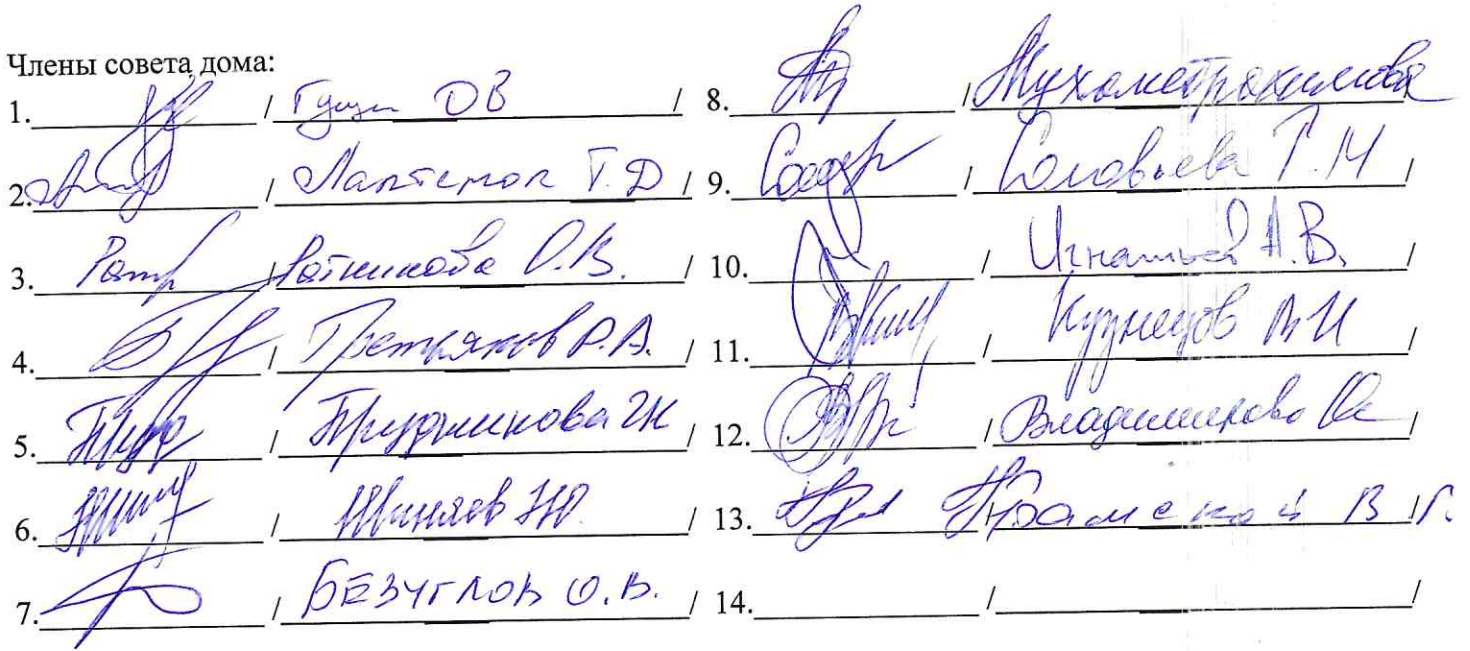 Члены совета дома:
1. / Гущин ОВ /
2. / Лаптенок Т.Д /
3. / Ротникова О.В. /
4. / Третьяков Р.А. /
5. / Прудникова ГК /
6. / Шиняев НЮ /
7. / БЕЗУГЛОВ О.В. /
8. / Мухаметрахимова
9. / Соловьева Г.М /
10. / Игнатьев А.В. /
11. / Кузнецов ВИ /
12. / Владимирова /
13. В /Г.
14. / /